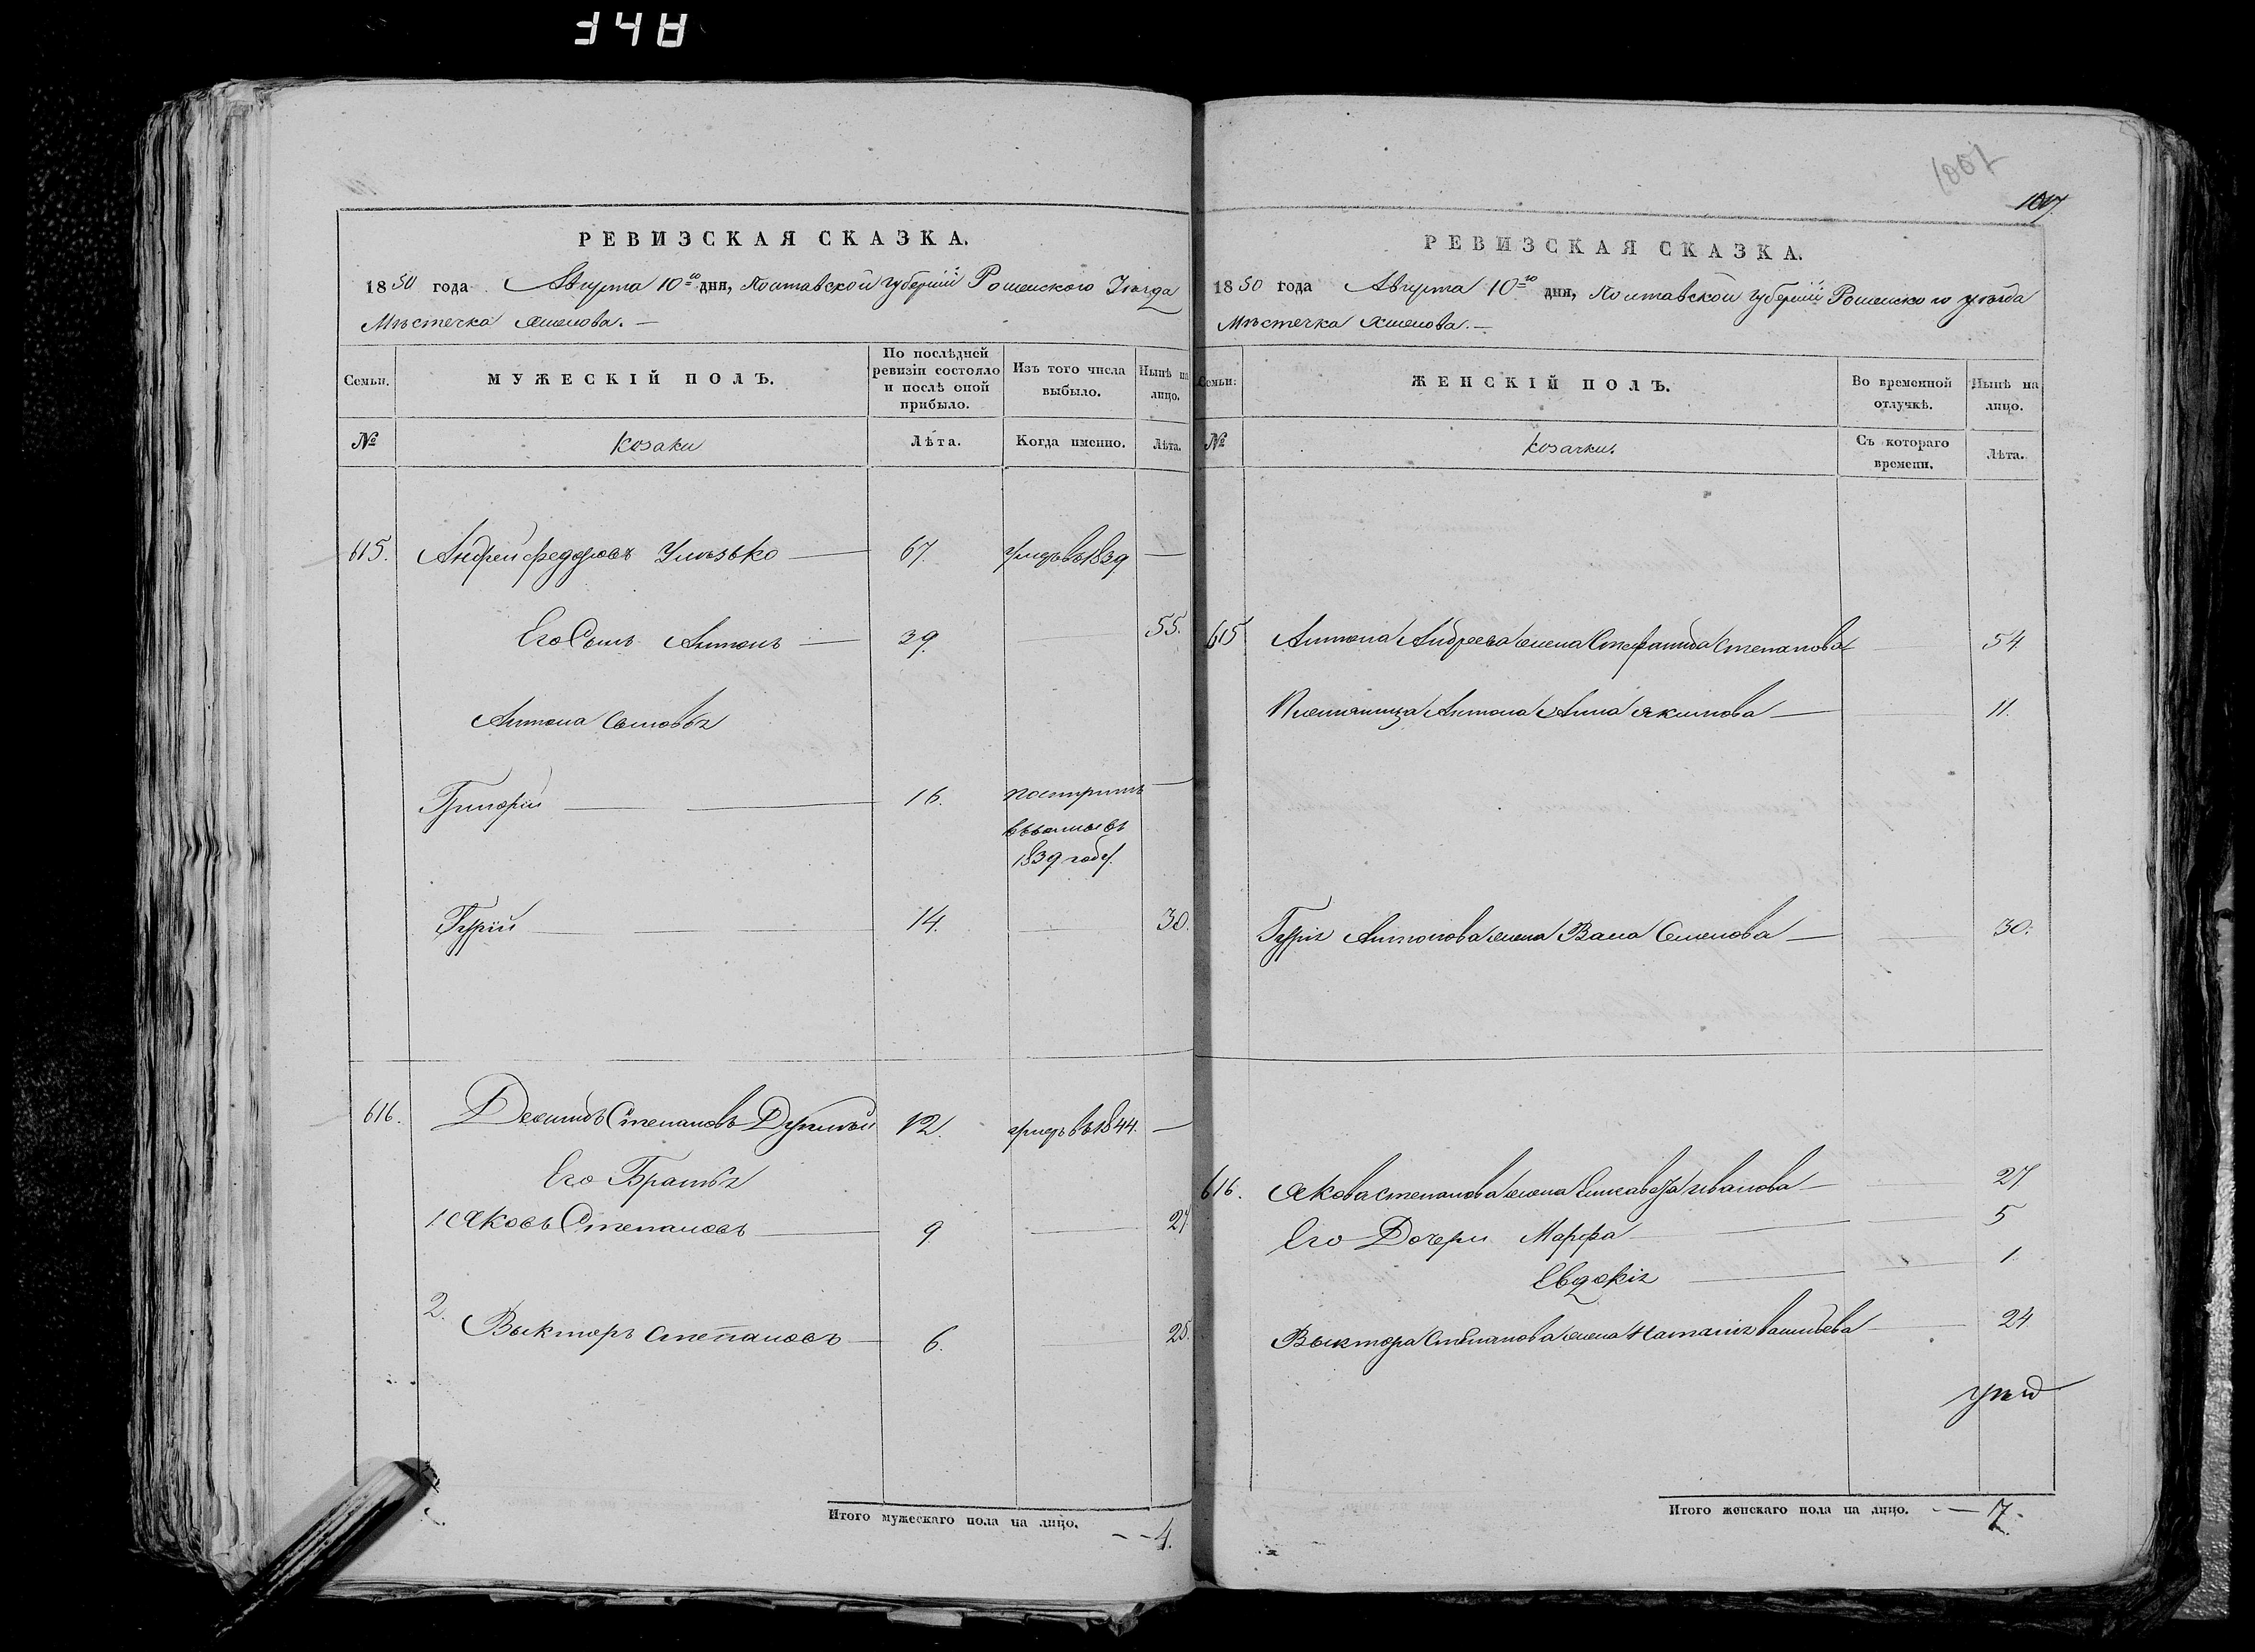 348
1007
1017.
РЕВИЗСКАЯ СКАЗКА.
1850 года Августа 10го дня, Полтавской губерніи Роменского Уѣзда
Мѣстечка
Семьи.
МУЖЕСКІЙ ПОЛЪ.
По послѣдней ревизіи состояло и послѣ оной прибыло.
Изъ того числа выбыло.
Нынѣ на лицо.
№
козаки
Лѣта.
Когда именно.
Лѣта.
615. Андрей Федоровъ 67. умеръ въ 1839 —
Его Сынъ Антонъ — 39. 55.
Антона Сыновья
Григорій — 16. —
1839 году.
Гурій — 14. 30.
616. Степановъ 12. умеръ въ 1844. —
Его Братья
1. Яковъ Степановъ — 9. 27
2. Викторъ Степановъ — 6. 25.
Итого мужескаго пола на лицо. -- 4.
РЕВИЗСКАЯ СКАЗКА.
1850 года Августа 10го дня, Полтавской губерніи Роменского уѣзда
Мѣстечка
Семьи.
ЖЕНСКІЙ ПОЛЪ.
Во временной отлучкѣ.
Нынѣ на лицо.
№
козачки.
Съ котораго времени.
Лѣта.
615 Антона Андреева жена Степанова 54.
Племяница Антона Анна Якимова — 11.
Гурія Антонова жена Семенова — 30.
616. Якова Степанова жена Елисавета Иванова — 27
Его Дочери Марфа 5
Евдокія — 1.
Виктора Степанова жена Наталія 24
Итого женскаго пола на лицо. -- 7.